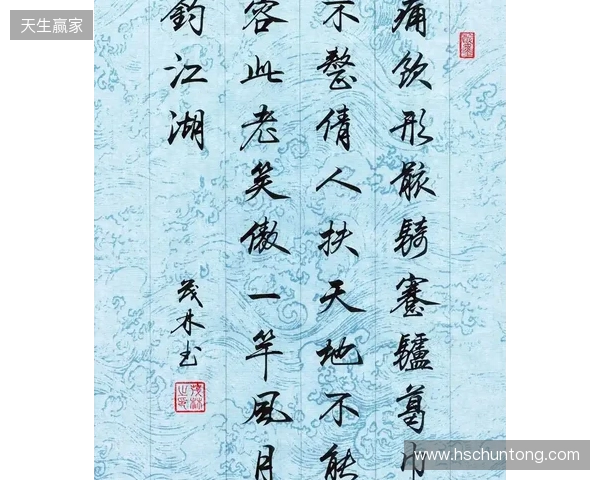 天生赢家
痛飲形骸騎蹇驢葛巾
不整倩人扶天地不能
容此老笑傲一竿風月
釣江湖
茂林书
www.hschuntong.com